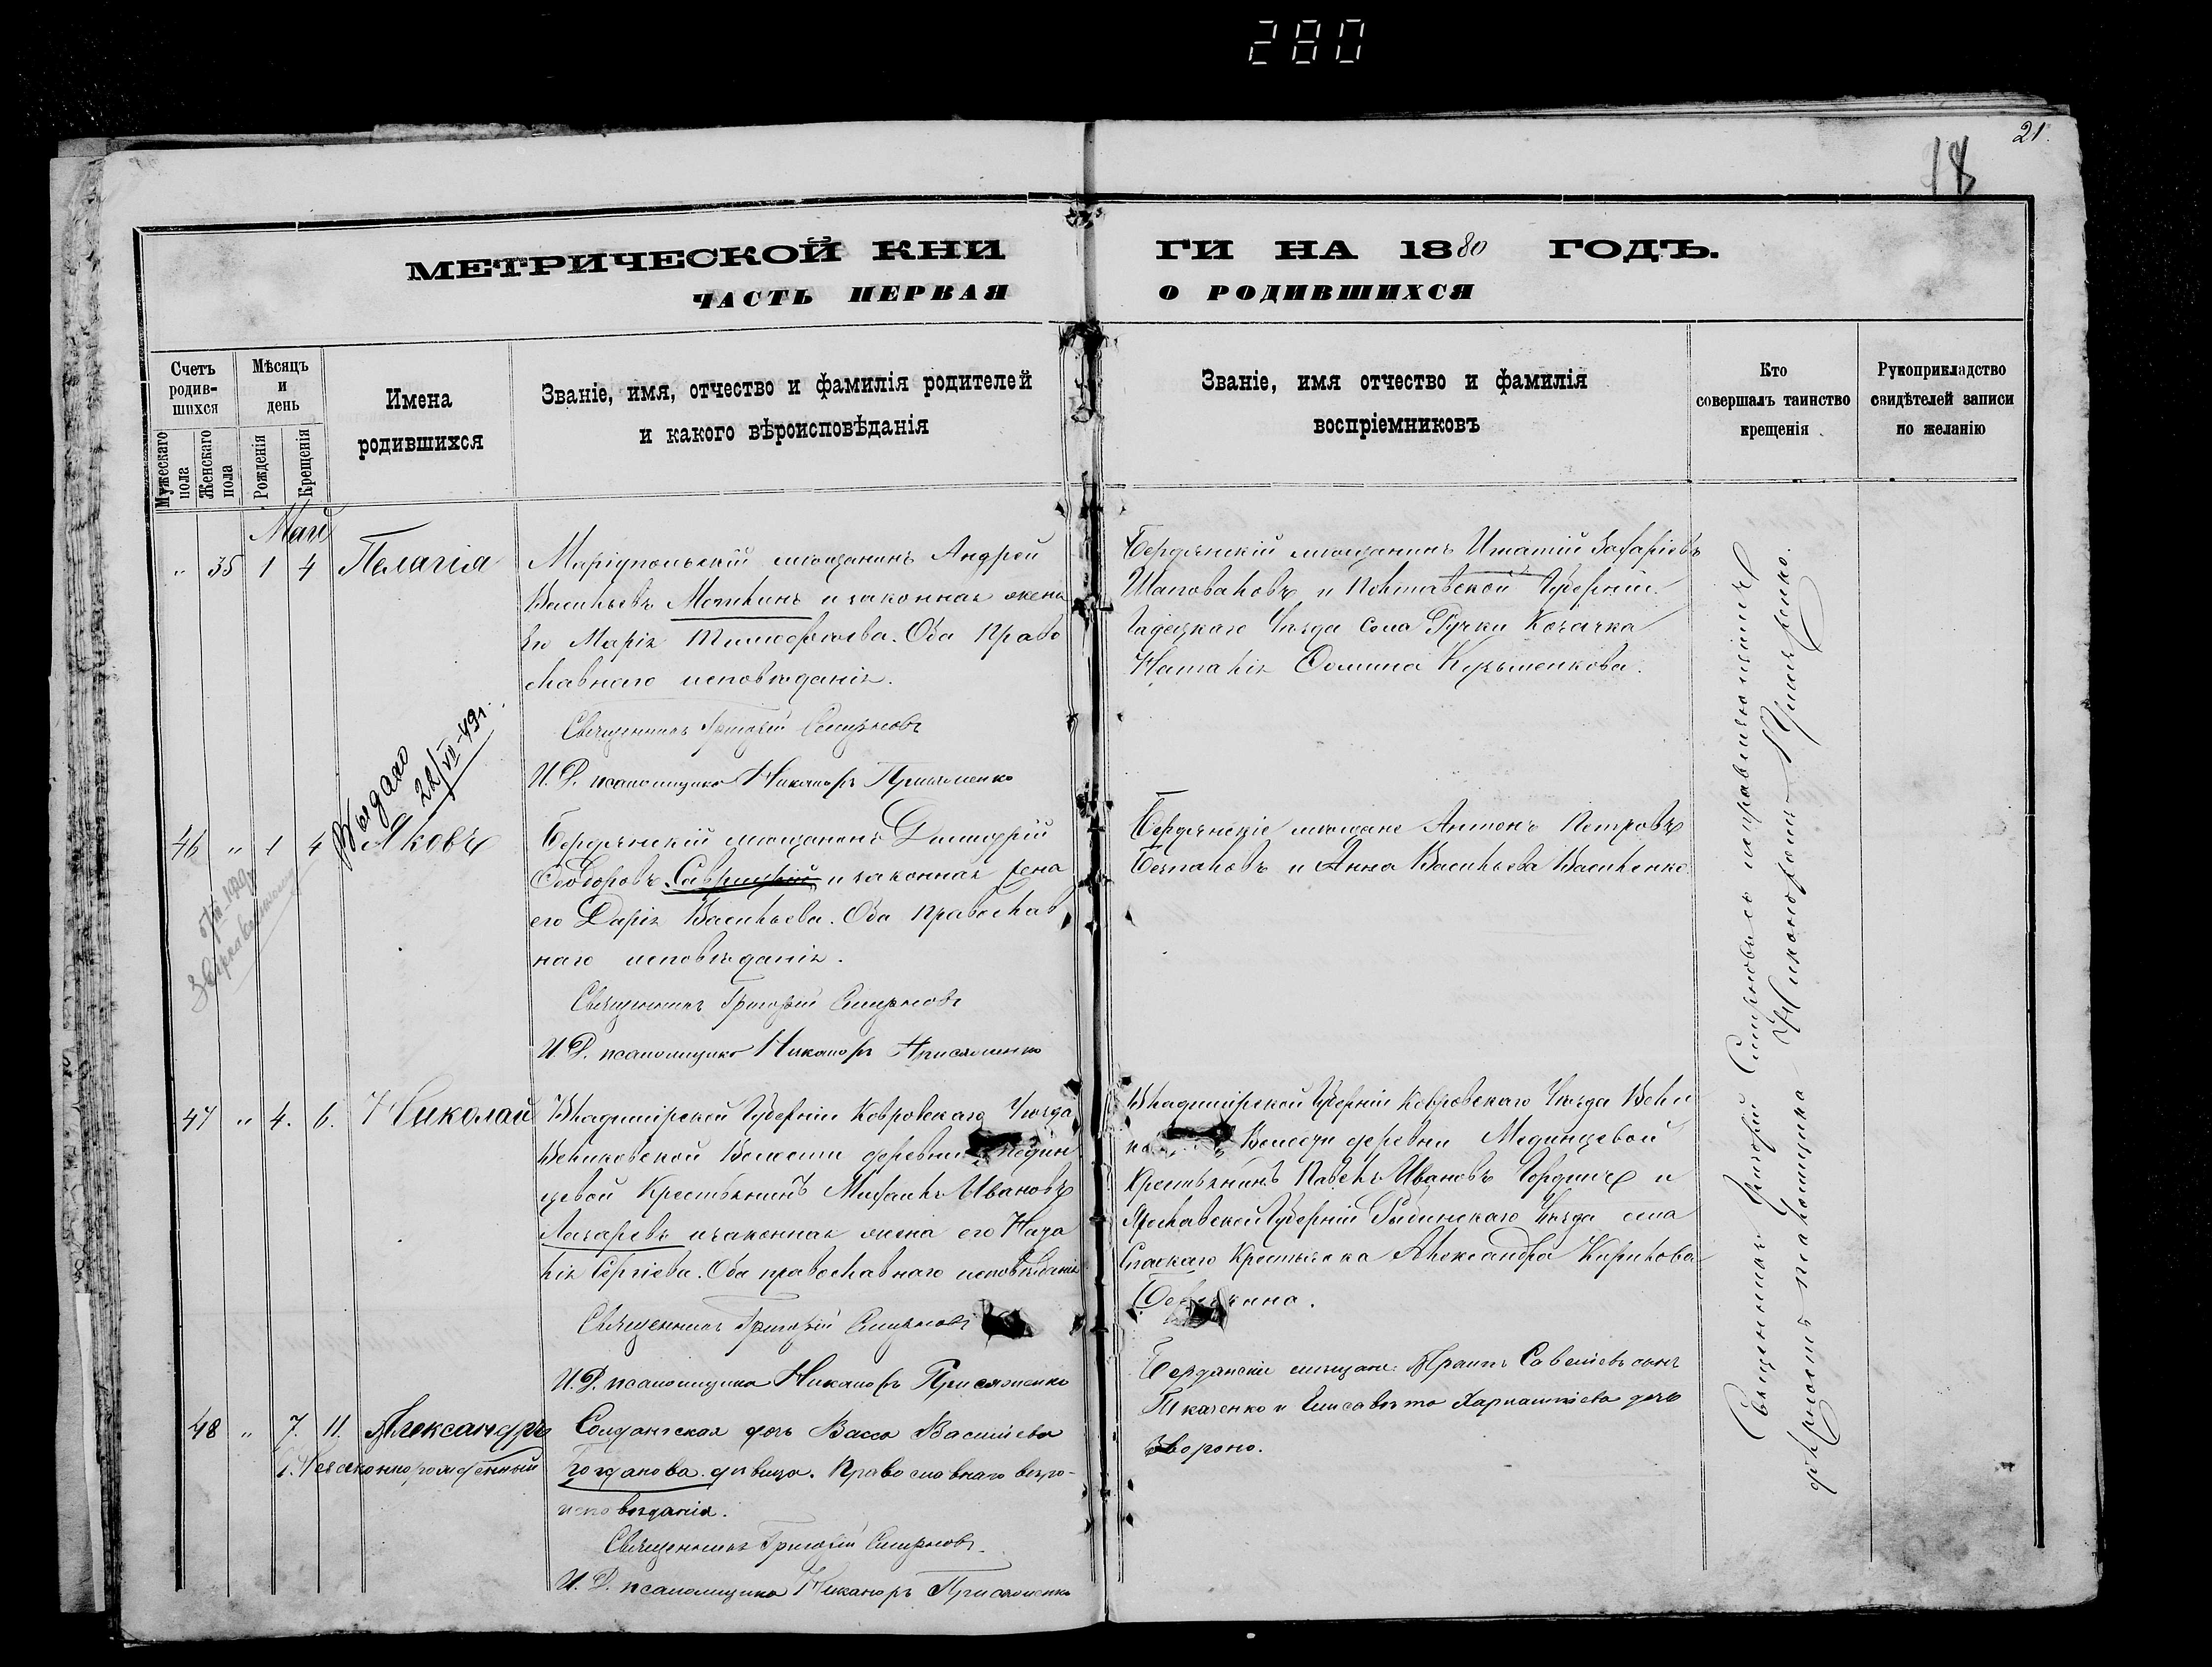 280
21.
18
МЕТРИЧЕСКОЙ КНИ ГИ НА 1880 ГОДЪ.
ЧАСТЬ ПЕРВАЯ О РОДИВШИХСЯ
Счетъ родив-шихся
Мужескаго пола
Женскаго пола
Мѣсяцъ и день
Рожденія
Крещенія
Имена родившихся
Званіе, имя, отчество и фамилія родителей
и какого вѣроисповѣданія
Званіе, имя отчество и фамилія
воспріемниковъ
Кто
совершалъ таинство
крещенія
Рукоприкладство
свидѣтелей записи
по желанію
Май
„ 35 1 4 Пелагія
Маріупольскій мѣщанинъ Андрей
Васильевъ и законная жена
его Марія Тимофѣева. Оба право
славнаго исповѣданія.
Священникъ Григорій Смирновъ
И. Д. псаломщика Никаноръ Присяженко
Бердянскій мѣщанинъ Игнатій Захаріевъ
Шаповаловъ и Полтавской Губерніи
Гадяцкаго Уѣзда села Ручки Козачка
Наталія Фомина Кузьменкова.
Выдано
22/VI-49г.
46 „ 1 4 Яковъ
Бердянскій мѣщанинъ Димитрій
Ѳеодоровъ Саврицкій и законная жена
его Дарія Васильева. Оба православ
наго исповѣданія.
Священникъ Григорій Смирновъ
И. Д. псаломщика Никаноръ Присяженко
Бердянскіе мѣщане Антонъ Петровъ
Безпаловъ и Анна Васильева Василенко
47 „ 4. 6. Николай
Владимірской Губерніи Ковровскаго Уѣзда
Великовской Волости деревни Медин
цевой Крестьянинъ Михаилъ Ивановъ
Лазаревъ и законная жена его Ната
лія Сергіева. Оба православнаго исповѣданія
Священникъ Григорій Смирновъ
И. Д. псаломщика Никаноръ Присяженко
Владимірской Губерніи Ковровскаго Уѣзда Вели
ко Волости деревни Мединцевой
Крестьянинъ Павелъ Ивановъ и
Ярославской Губерніи Рыбинскаго Уѣзда села
Спаскаго Крестьянка Александра Кирилова
48 „ 7. 11. Александръ
Незаконнорожденный
Солдатская дочь Васса Васильева
Богданова дѣвица. Православнаго вѣро-
исповѣданія.
Священникъ Григорій Смирновъ
И. Д. псаломщика Никаноръ Присяженко
Бердянскіе мѣщане: Савельевъ сынъ
Ткаченко и Елисавета Харлампіева дочь
Ворона.
Священникъ Григорій Смирновъ съ исправляющимъ
должность псаломщика Никаноромъ Присяженко.